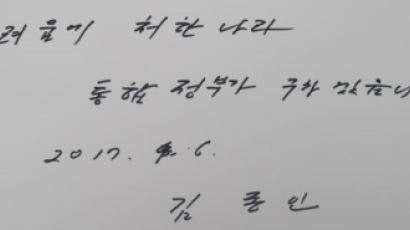 려움에 처한 나라
통합 정부가 구하겠습니
2017. 4. 6.
김종인